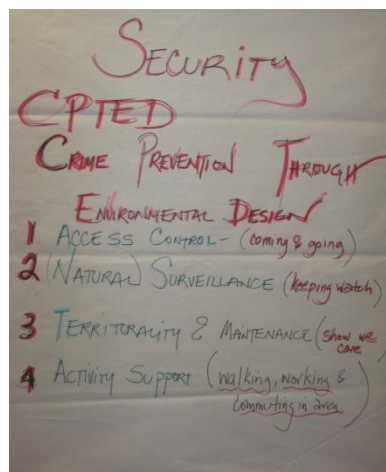 SECURITY
CPTED
CRIME PREVENTION THROUGH
ENVIRONMENTAL DESIGN
1 ACCESS CONTROL - (coming & going)
2 (NATURAL) SURVEILLANCE (keeping watch)
3 TERRITORALITY & MAINTENANCE (show we
care
4 ACTIVITY SUPPORT (walking, working &
commuting in area)